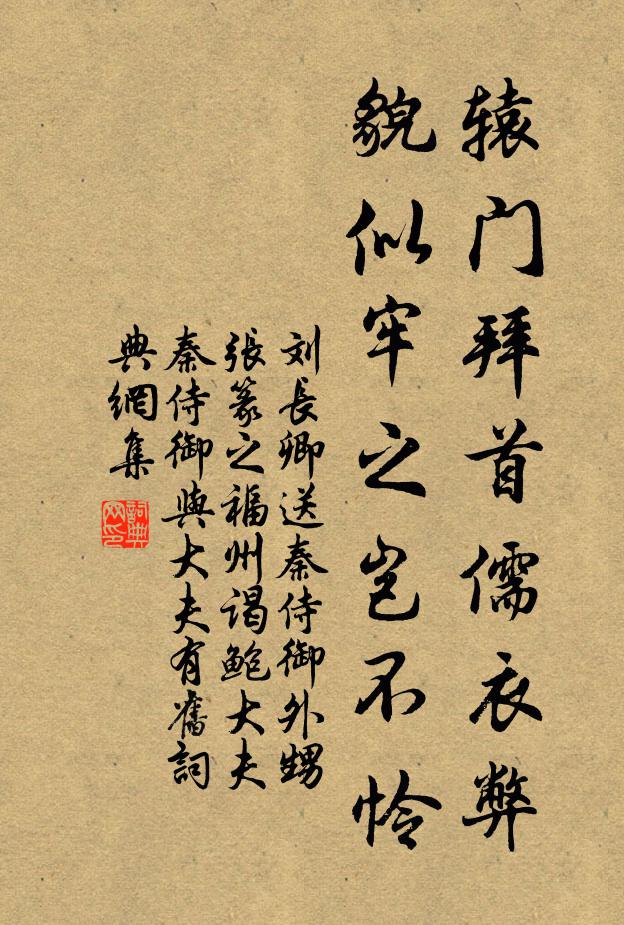 辕门拜首儒衣弊
貌似牢之岂不怜
刘長卿送秦侍御外甥
張篆之福州谒鲍大夫
秦侍御與大夫有舊詞
典網集
詞典
网印